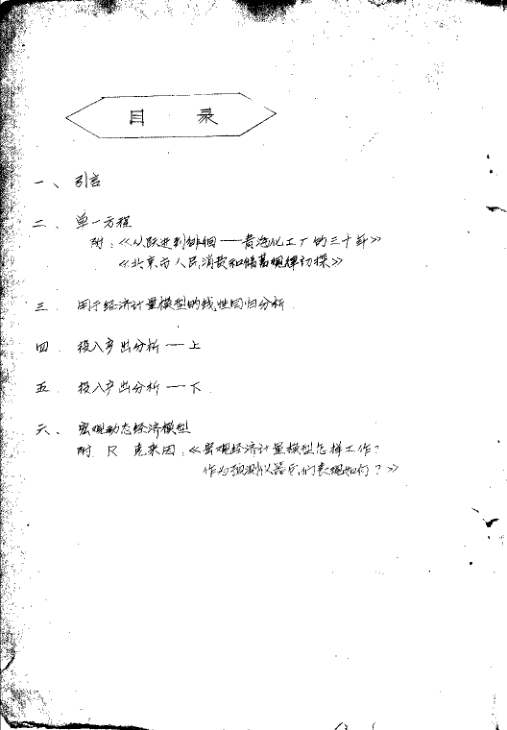 目 录
一、引言
二、单一方程
附：《从跃进到徘徊——青沧化工厂的三十年》
《北京市人民消费和储蓄规律初探》
三 用于经济计量模型的线性回归分析
四 投入产出分析——上
五 投入产出分析——下
六、宏观动态经济模型
附 R 克莱因：《宏观经济计量模型怎样工作？
作为预测仪器它们表现如何？》